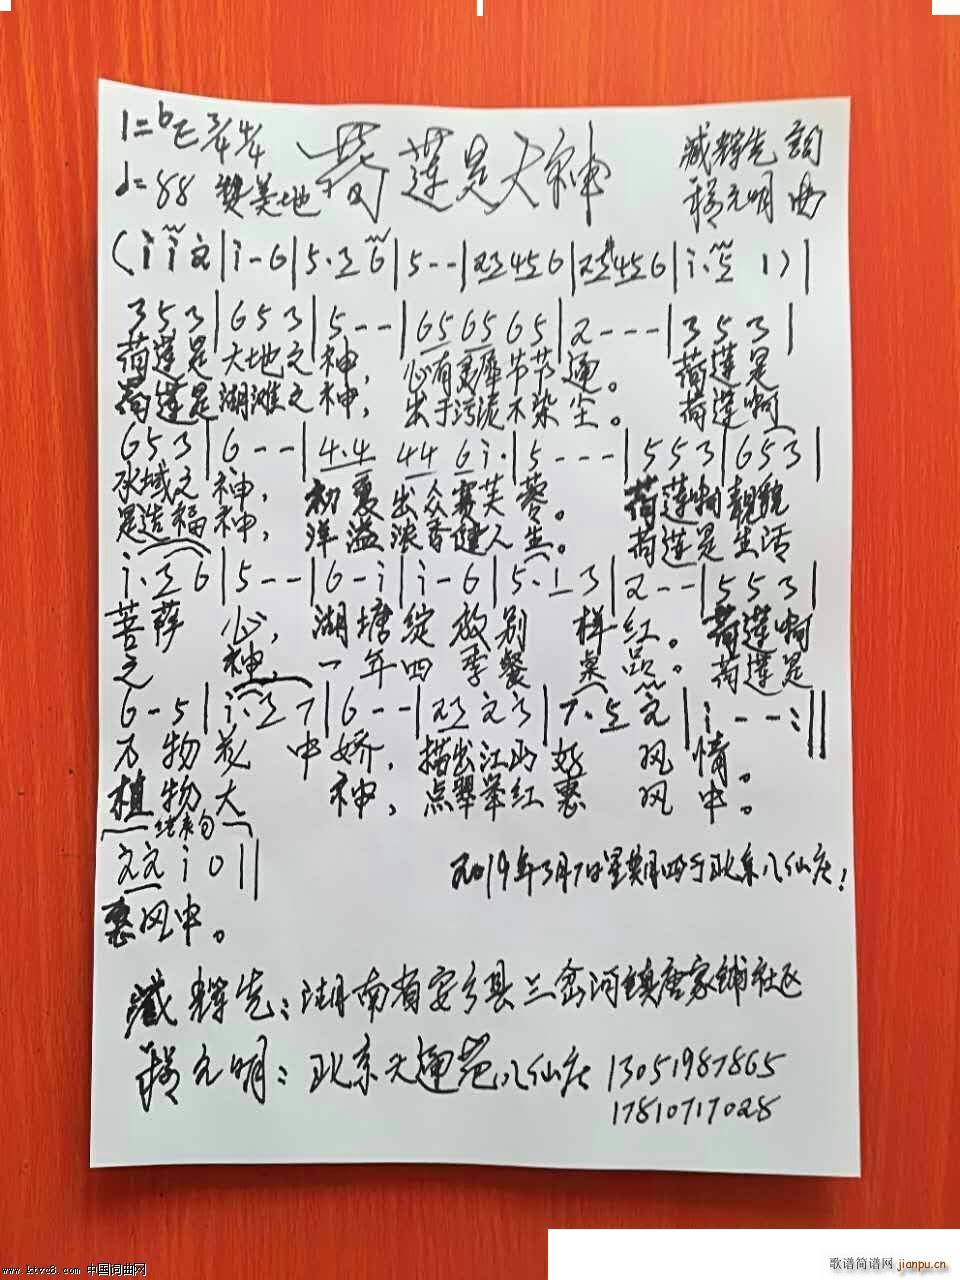 1=ᵇE 3/4 4/4 荷莲是大神 臧辉先 詞
♩=88 赞美地 程元明 曲
(i i 2|i-6|5·3 6|5--|23456|23#456|i·5 1)|
353|653|5--|656565|2---|353|
荷莲是大地之神，心有灵犀节节通。荷莲是
荷莲是湖滩之神，出于污泥不染尘。荷莲啊
653|6--|4·4 44 6i·|5---|553|653|
水域之神，初夏出众赛芙蓉。荷莲啊靓貌
是造福神，洋溢浓香健人生。荷莲是生活
i·36|5--|6-i|i-6|5·13|2--|553|
菩萨心，湖塘绽放别样红。荷莲啊
之神，一年四季餐桌品。荷莲是
6-5|i·37|6--|2323|7·52|i--:||
万物花中娇，描出江山好风情。
植物大神，点翠举红惠风中。
结束句
22i0||
2019年3月7日星期四于北京八仙庄！
惠风中。
臧辉先：湖南省安乡县三岔河镇唐家铺社区
程元明：北京天通苑八仙庄 13051987865
17810717028
www.ktvc8.com 中国词曲网
歌谱简谱网
jianpu.cn